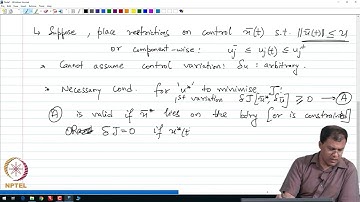 ↳ Suppose, place restrictions on control ū(t) s.t. ‖ū(t)‖ ≤ U
or component-wise: u_j^- ≤ u_j(t) ≤ u_j^+
• Cannot assume control variation: δu: arbitrary.
• Necessary Cond. for 'u*' to minimise J:
1st variation δJ[ū*, δū] ≥ 0 → (A)
(A) is valid if ū* lies on the bdry [or is constrained]
δJ = 0 if u*(t
NPTEL